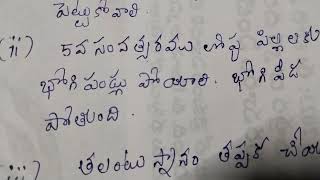 పెట్టుకోవాలి.
(ii) 5వ సంవత్సరము లోపు పిల్లలకు
భోగిపండ్లు పోయాలి. భోగి పీడ
పోతుంది.
(iii) తలంటు స్నానం తప్పక చేయ